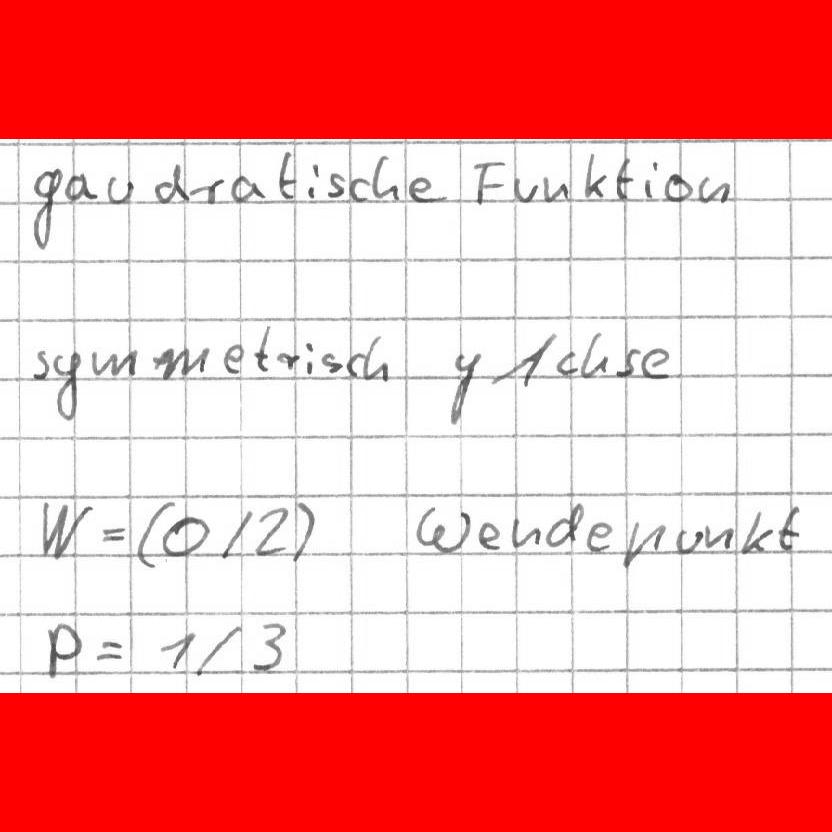 gaudratische Funktion
symmetrisch y Achse
W = (0/2) Wendepunkt
P = 1/3